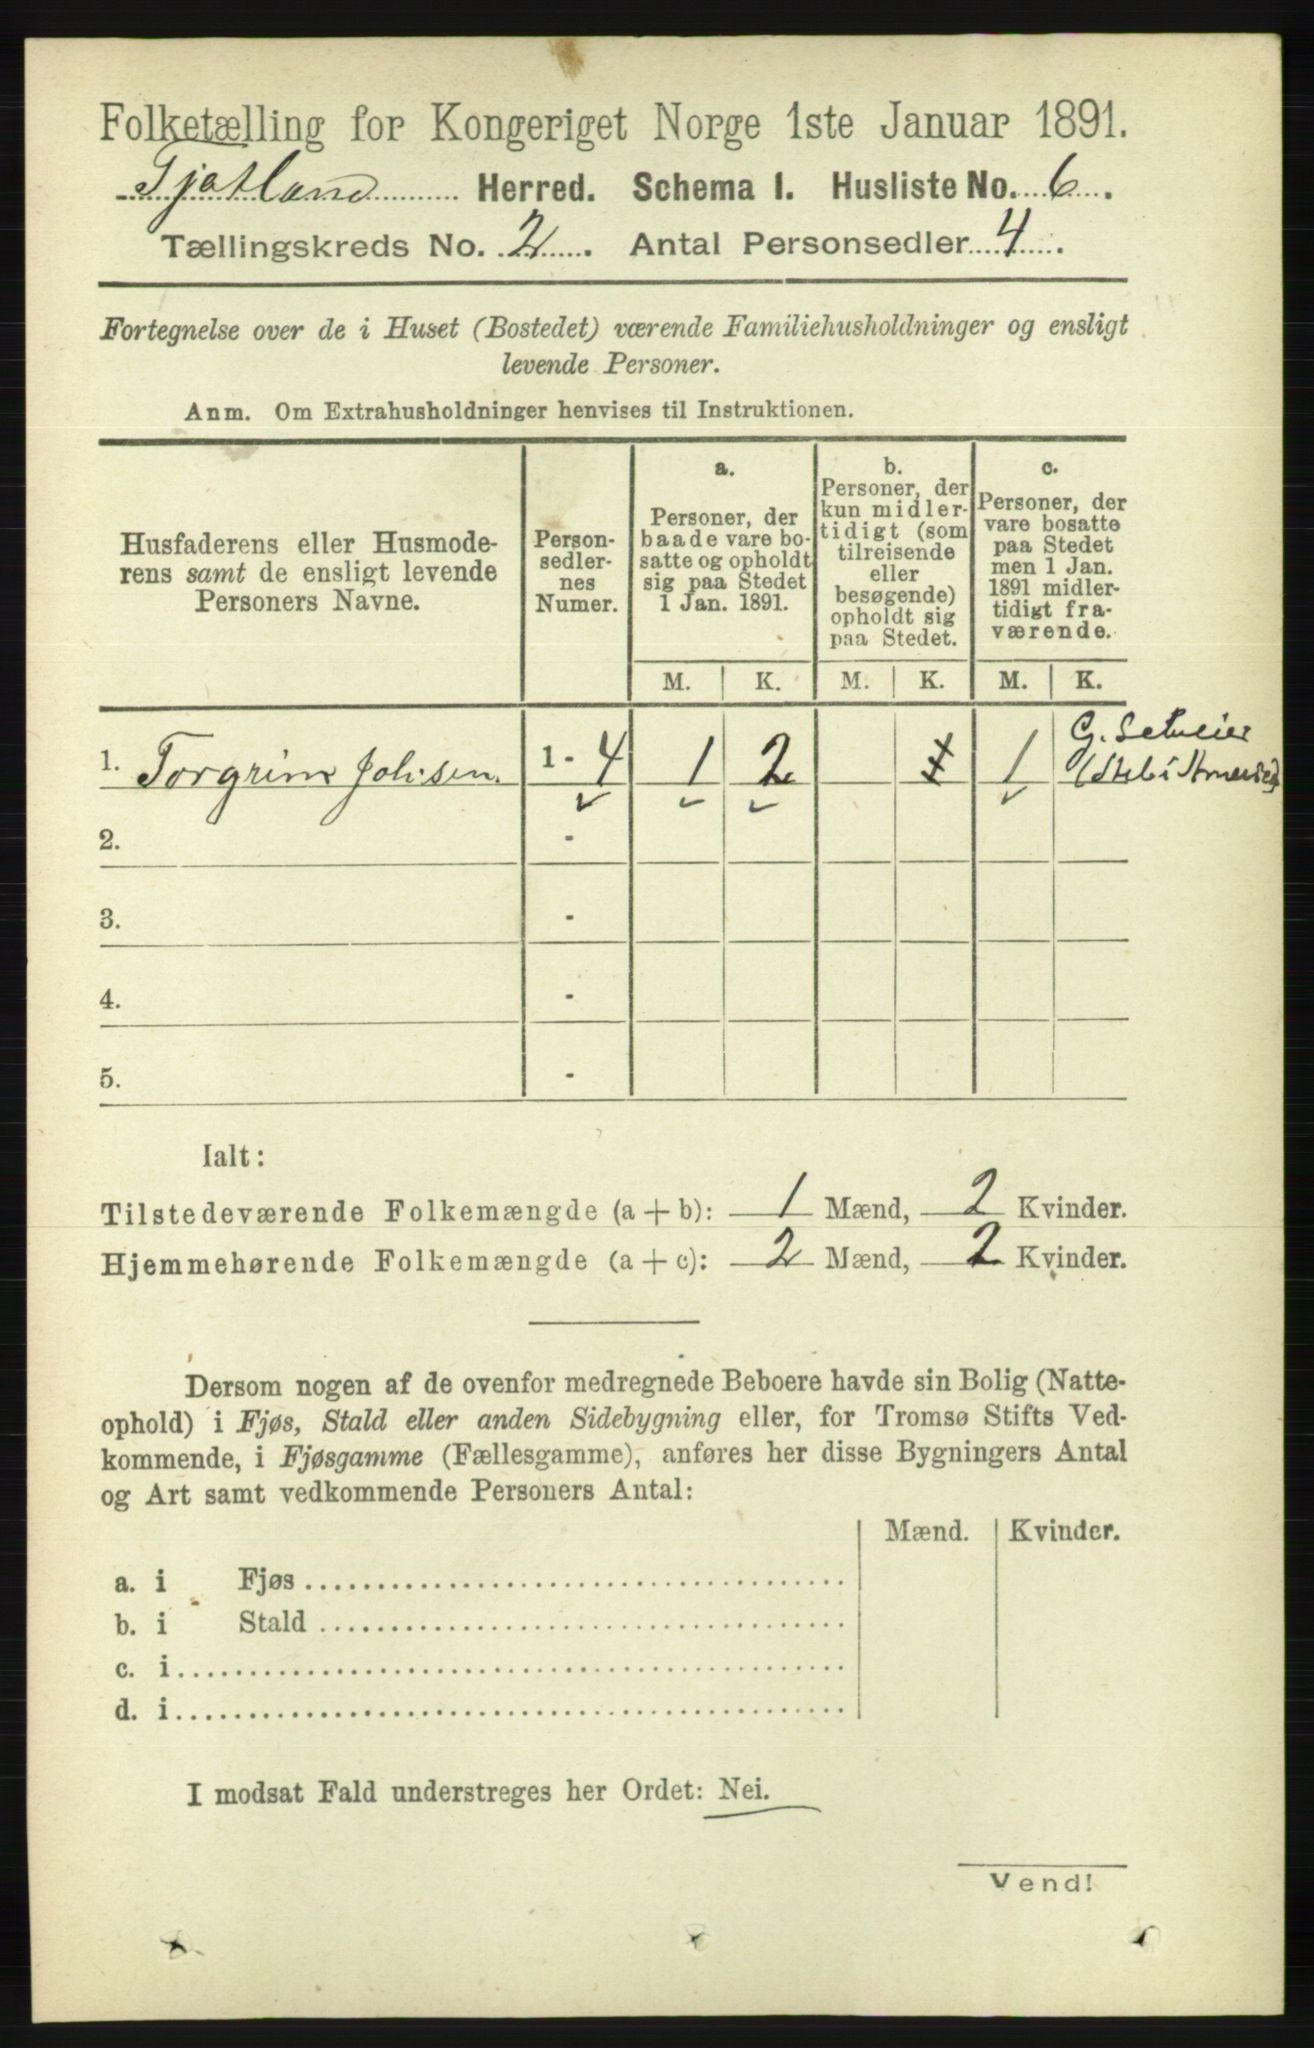 Folketælling for Kongeriget Norge 1ste Januar 1891.
Fjotland Herred. Schema 1. Husliste No. 6.
Tællingskreds No. 2. Antal Personsedler 4.
Fortegnelse over de i Huset (Bostedet) værende Familiehusholdninger og ensligt
levende Personer.
Anm. Om Extrahusholdninger henvises til Instruktionen.
Husfaderens eller Husmode-
rens samt de ensligt levende
Personers Navne.
Person-
sedler-
nes
Numer.
a.
Personer, der
baade vare bo-
satte og opholdt
sig paa Stedet
1 Jan. 1891.
b.
Personer, der
kun midler-
tidigt (som
tilreisende
eller
besøgende)
opholdt sig
paa Stedet.
c.
Personer, der
vare bosatte
paa Stedet
men 1 Jan.
1891 midler-
tidigt fra-
værende.
M. K. M. K. M. K.
1. Torgrim Johnsen. 1 - 4 1 2 1
2. -
3. -
4. -
5. -
Ialt:
Tilstedeværende Folkemængde (a + b): 1 Mænd, 2 Kvinder.
Hjemmehørende Folkemængde (a + c): 2 Mænd, 2 Kvinder.
Dersom nogen af de ovenfor medregnede Beboere havde sin Bolig (Natte-
ophold) i Fjøs, Stald eller anden Sidebygning eller, for Tromsø Stifts Ved-
kommende, i Fjøsgamme (Fællesgamme), anføres her disse Bygningers Antal
og Art samt vedkommende Personers Antal:
Mænd. Kvinder.
a. i Fjøs
b. i Stald
c. i
d. i
I modsat Fald understreges her Ordet: Nei.
Vend!